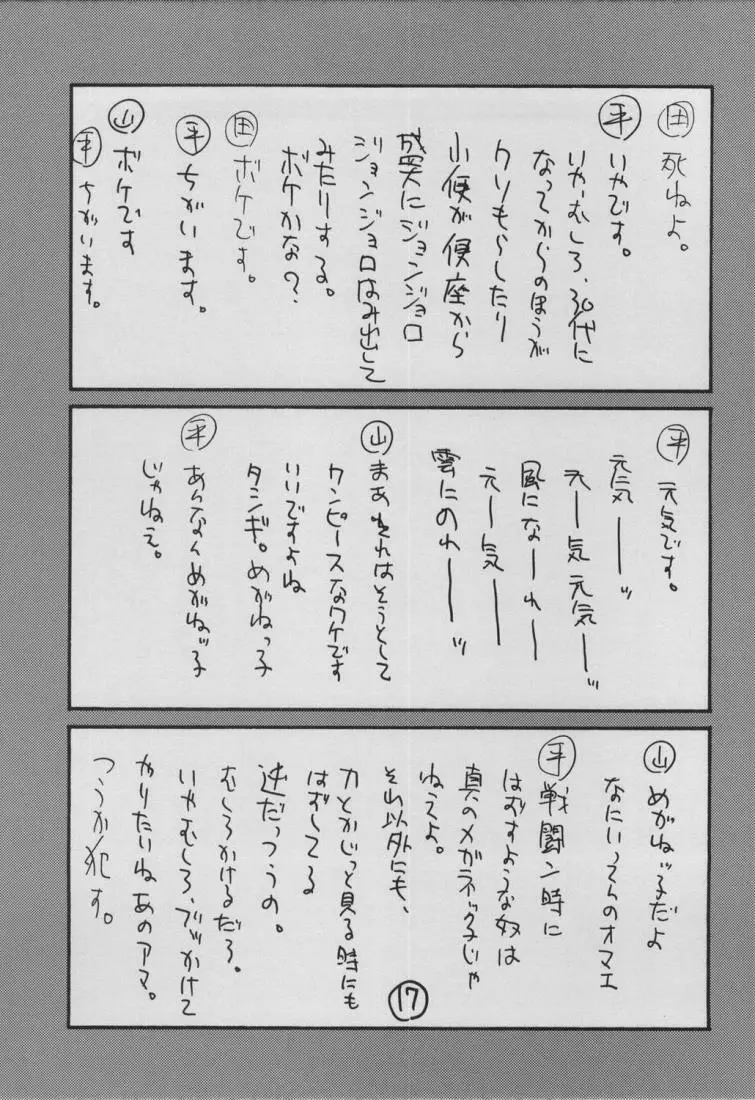 田 死ねよ。
平 いやです。
いや、むしろ、30代に
なってからのほうが
クソもらしたり
小便が便座から
盛大にジョンジョロ
ジョンジョロはみ出して
みたりする。
ボケかな？
田 ボケです。
平 ちがいます。
山 ボケです
平 ちがいます。
平 元気です。
元気ーッ
元ー気元気ーッ
風になーれー
元ー気ー
雲にのれーッ
山 まあそれはそうとして
ワンピースなワケです
いいですよね
タシギ。めがねっ子
平 あんなんめがねッ子
じゃねえ。
山 めがねッ子だよ
なにいってんのオマエ
平 戦闘ン時に
はずすような奴は
真のメガネッ子じゃ
ねえよ。
それ以外にも、
力とかじっと見る時にも
はずしてる
逆だっつうの。
むしろかけるだろ。
いやむしろ、ブッかけて
やりたいねあのアマ。
つうか犯す。
17